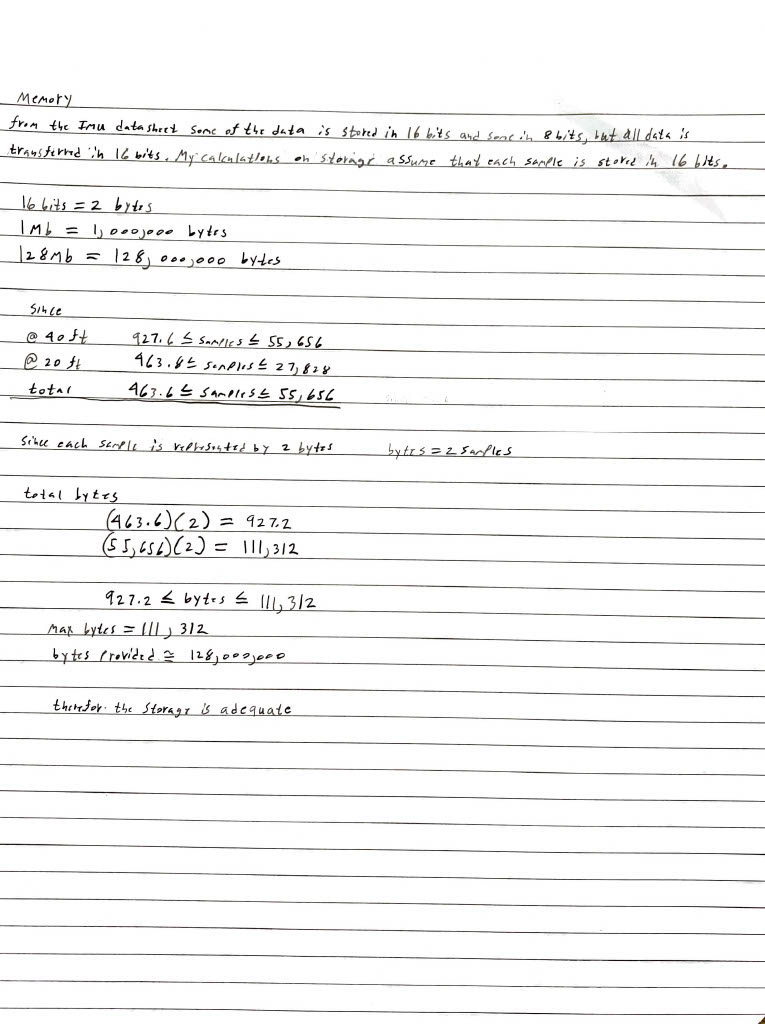 Memory
from the IMU datasheet some of the data is stored in 16 bits and some in 8 bits, but all data is
transferred in 16 bits. My calculations on storage assume that each sample is stored in 16 bits.
16 bits = 2 bytes
1 Mb = 1,000,000 bytes
128 Mb = 128,000,000 bytes
Since
@ 40 ft 927.6 ≤ samples ≤ 55,656
@ 20 ft 463.8 ≤ samples ≤ 27,828
total 463.6 ≤ samples ≤ 55,656
Since each sample is represented by 2 bytes bytes = 2 samples
total bytes
(463.6)(2) = 927.2
(55,656)(2) = 111,312
927.2 ≤ bytes ≤ 111,312
max bytes = 111,312
bytes provided ≅ 128,000,000
therefor the storage is adequate